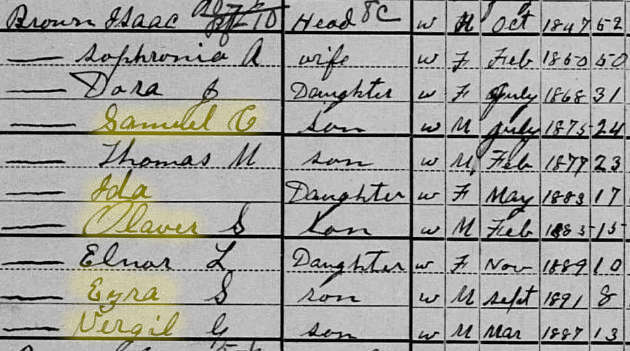 Brown Isaac Head w M Oct 1847 52
— Sophronia A wife w F Feb 1850 50
— Dora J Daughter w F July 1868 31
— Samuel C son w M July 1875 24
— Thomas M son w M Feb 1877 23
— Ida Daughter w F May 1883 17
— Olaver S son w M Feb 1885 15
— Elnor L Daughter w F Nov 1889 10
— Ezra S son w M Sept 1891 8
— Vergil G son w M Mar 1887 13